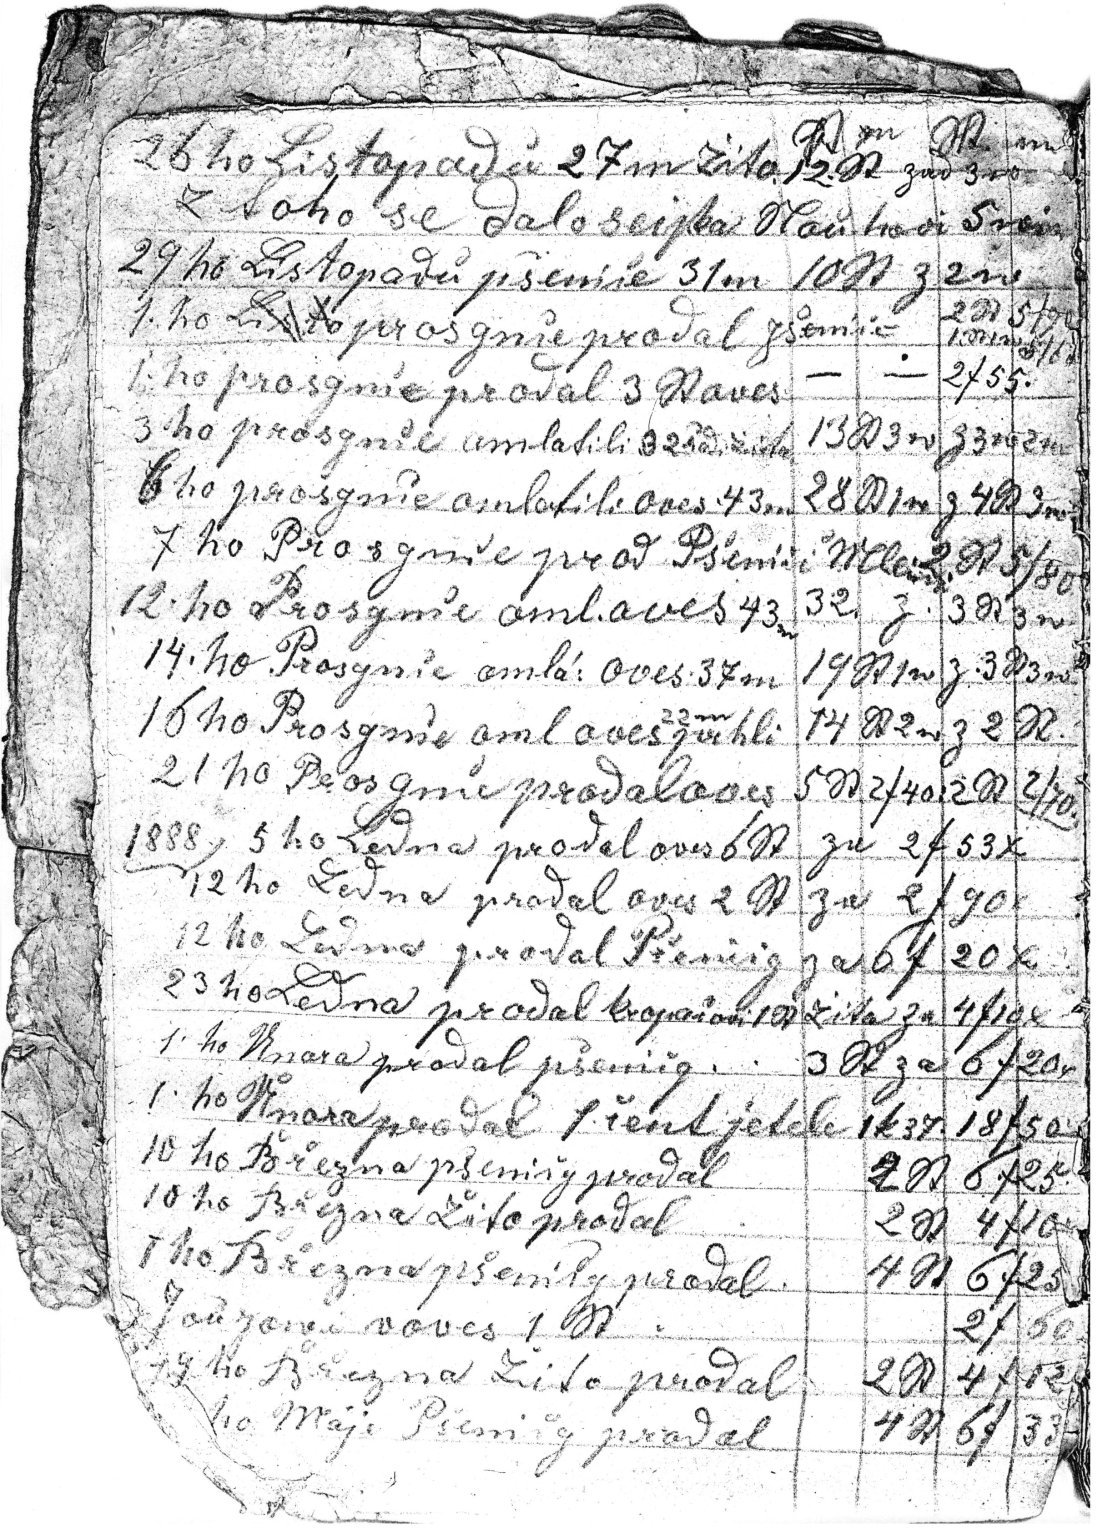 St m St. m
26 ho Listopadu 27 m Žito. 12. St zad 3 w
z toho se dalo sejpka 5
29 ho Listopadu pšenice 31 m 10 St z 2 w
1. ho prosgnie prodal pšenice 2 St 5/90
1. ho prosgnie prodal 3 St oves — — 2f 55.
3 ho prosgnie omlatili 32 žita 13 St 3 w z 3 w
6 ho prosgnie omlatili oves 43 m 28 St 1 w z 4 St 3 w
7 ho Prosgnie prod Pšenici 2 St 5/80
12. ho Prosgnie oml. oves 43 m 32. z. 3 St 3 w
14. ho Prosgnie omla: oves. 37 m 19 St 1 w z. 3 St 3 w
16 ho Prosgnie oml oves 22 m 14 St 2 w z 2 St.
21 ho Prosgnie prodal oves 5 St 2/40. 2 St 2/70.
1888 5 ho Ledna prodal oves 6 St za 2f 53x
12 ho Ledna prodal oves 2 St za 2f 90x
12 ho Ledna prodal Pšenicig za 6f 20x
23 ho Ledna prodal kropačovi 1 St Žita za 4f 10x
1. ho Unora prodal pšenicig. 3 St za 6f 20x
1. ho Unora prodal 1. cent jetele 1k 37. 18f 50
10 ho Března pšenicig prodal 2 St 6f 25.
10 ho Března Žito prodal 2 St 4f 10
1 ho Března pšenicig prodal. 4 St 6f 25
voves 1 St. 2f 60
19 ho Března Žito prodal 2 St 4f 12
ho Máje Pšenicig prodal 4 St 6f 33